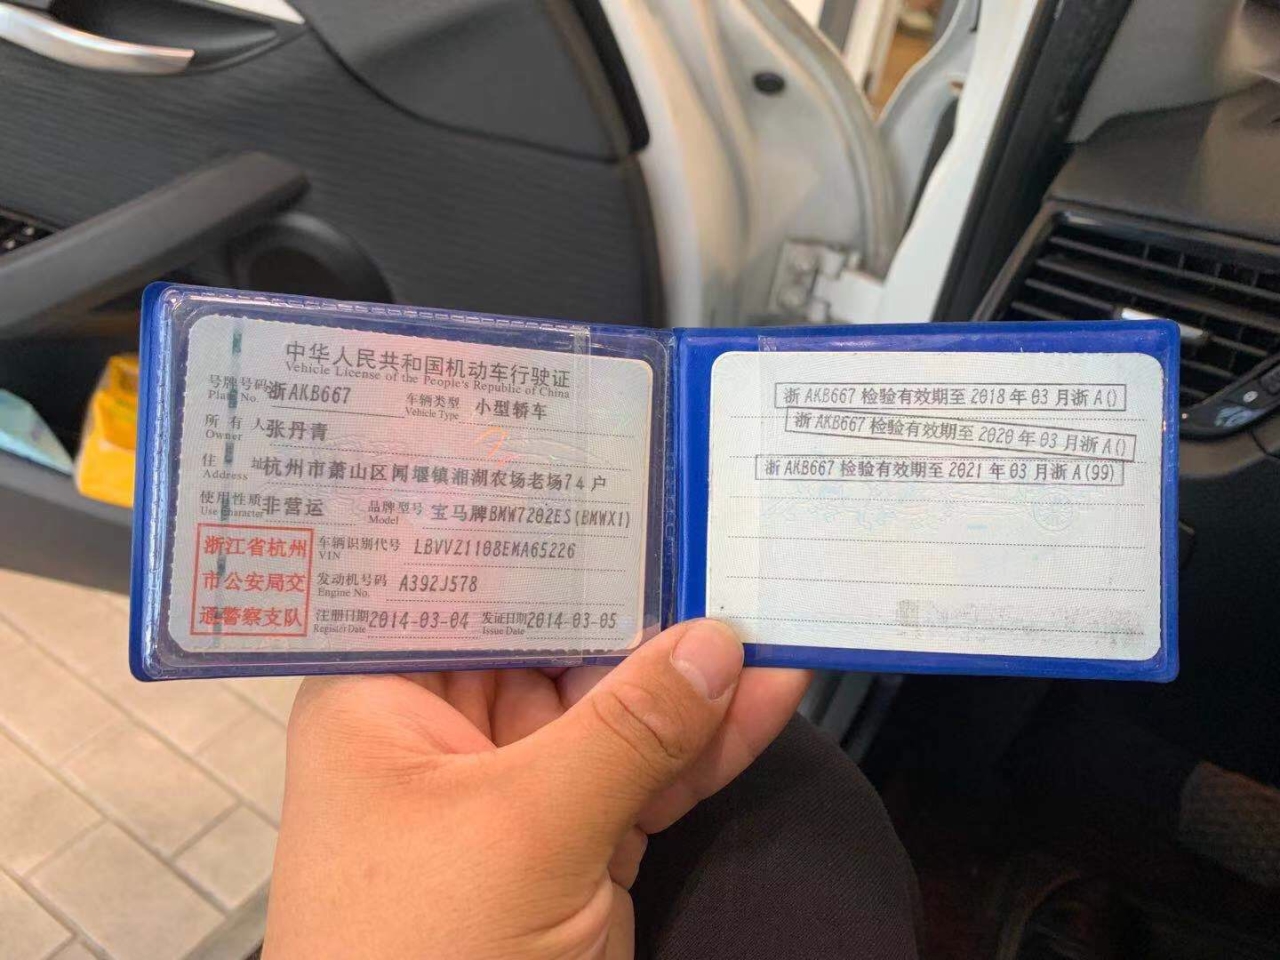 中华人民共和国机动车行驶证
Vehicle License of the People's Republic of China
号牌号码 浙AKB667 车辆类型 小型轿车
Plate No. Vehicle Type
所有人 张丹青
Owner
住址 杭州市萧山区闻堰镇湘湖农场老场74户
Address
使用性质 非营运 品牌型号 宝马牌BMW7202ES(BMWX1)
Use Character Model
浙江省杭州
市公安局交
通警察支队
车辆识别代号 LBVVZ1108EMA65226
VIN
发动机号码 A392J578
Engine No.
注册日期 2014-03-04 发证日期 2014-03-05
Register Date Issue Date
浙AKB667检验有效期至2018年03月浙A()
浙AKB667检验有效期至2020年03月浙A()
浙AKB667检验有效期至2021年03月浙A(99)